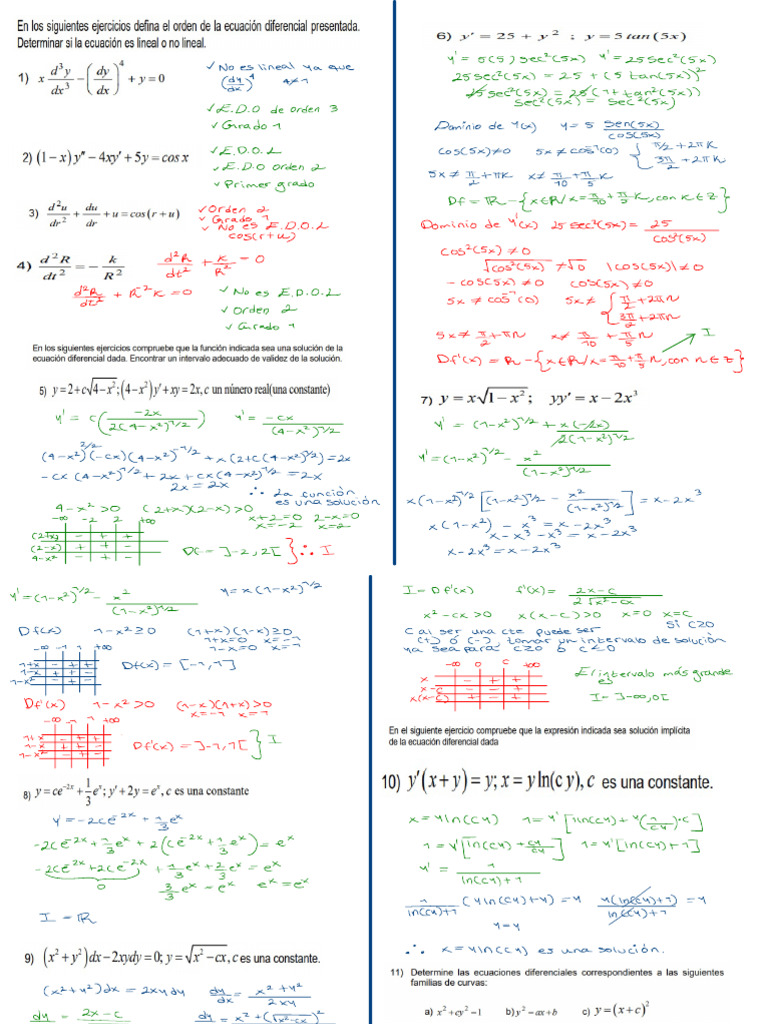 En los siguientes ejercicios defina el orden de la ecuación diferencial presentada.
Determinar si la ecuación es lineal o no lineal.
1) x d³y/dx³ − (dy/dx)⁴ + y = 0
✓ No es lineal ya que
(dy/dx)⁴ 4≠1
✓ E.D.O de orden 3
✓ Grado 1
2) (1−x)y″ − 4xy′ + 5y = cos x
✓ E.D.O.L
✓ E.D.O orden 2
✓ Primer grado
3) d²u/dr² + du/dr + u = cos(r+u)
✓ Orden 2
✓ Grado 1
✓ No es E.D.O.L
cos(r+u)
4) d²R/dt² = − k/R²
d²R/dt² + k/R² = 0
d²R/dt² + R⁻²k = 0
✓ No es E.D.O.L
✓ Orden 2
✓ Grado 1
En los siguientes ejercicios compruebe que la función indicada sea una solución de la
ecuación diferencial dada. Encontrar un intervalo adecuado de validez de la solución.
5) y = 2 + c√(4−x²); (4−x²)y′ + xy = 2x, c un número real(una constante)
y' = c(−2x / 2(4−x²)^1/2) y' = −cx / (4−x²)^1/2
(4−x²)^2/2 (−cx)(4−x²)^−1/2 + x(2+c(4−x²)^1/2) = 2x
−cx(4−x²)^1/2 + 2x + cx(4−x²)^1/2 = 2x
2x = 2x ∴ La función
es una solución
4−x² > 0 (2+x)(2−x) > 0
x+2=0 2−x=0
x=−2 x=2
−∞ −2 2 +∞
(2+x) − + +
(2−x) + + −
4−x² − + −
Df = ]−2,2[ } ∴ I
6) y' = 25 + y² ; y = 5 tan(5x)
y' = 5(5) sec²(5x) y' = 25 sec²(5x)
25 sec²(5x) = 25 + (5 tan(5x))²
25 sec²(5x) = 25(1+tan²(5x))
sec²(5x) = sec²(5x)
Dominio de y(x) y = 5 sen(5x)/cos(5x)
cos(5x)≠0 5x≠cos⁻¹(0) { π/2 + 2πk
3π/2 + 2πk
5x ≠ π/2 + πk x ≠ π/10 + π/5 k
Df = R − {x∈R/x = π/10 + π/5 k, con k∈Z}
Dominio de y'(x) 25 sec²(5x) = 25/cos²(5x)
cos²(5x) ≠ 0
√cos²(5x) ≠ √0 |cos(5x)| ≠ 0
−cos(5x) ≠ 0 cos(5x) ≠ 0
5x ≠ cos⁻¹(0) 5x ≠ { π/2 + 2πn
3π/2 + 2πn
5x ≠ π/2 + πn x ≠ π/10 + π/5 n I
Df'(x) = R − {x∈R/x = π/10 + π/5 n, con n∈Z}
7) y = x√(1−x²); yy′ = x − 2x³
y' = (1−x²)^1/2 + x(−2x) / 2(1−x²)^1/2
y' = (1−x²)^1/2 − x² / (1−x²)^1/2
x(1−x²)^1/2 [(1−x²)^1/2 − x² / (1−x²)^1/2] = x − 2x³
x(1−x²) − x³ = x − 2x³
x − x³ − x³ = x − 2x³
x − 2x³ = x − 2x³
y' = (1−x²)^1/2 − x² / (1−x²)^1/2 y = x(1−x²)^1/2
Df(x) 1−x² ≥ 0 (1+x)(1−x) ≥ 0
1+x=0 x=−1
1−x=0 x=1
−∞ −1 1 +∞
1+x − + +
1−x + + −
1−x² − + −
Df(x) = [−1,1]
Df'(x) 1−x² > 0 (1−x)(1+x) > 0
x=−1 x=1
−∞ −1 1 +∞
1+x − + +
1−x + + −
1−x² − + −
Df'(x) = ]−1,1[ } I
8) y = ce⁻²ˣ + 1/3 eˣ; y′ + 2y = eˣ, c es una constante
y' = −2ce⁻²ˣ + 1/3 eˣ
−2ce⁻²ˣ + 1/3 eˣ + 2(ce⁻²ˣ + 1/3 eˣ) = eˣ
−2ce⁻²ˣ + 2ce⁻²ˣ + 1/3 eˣ + 2/3 eˣ = eˣ
0
3/3 eˣ = eˣ eˣ = eˣ
I = R
9) (x² + y²)dx − 2xydy = 0; y = √(x² − cx), c es una constante.
(x² + y²)dx = 2xydy dy/dx = x² + y² / 2xy
dy/dx = 2x − c dy/dx = x² + (√(x²−cx))²
I = Df'(x) f'(x) = 2x − c / 2√(x²−cx)
x² − cx > 0 x(x−c) > 0 x=0 x=c
si c≥0
C al ser una cte puede ser
(+) ó (−), tomar un intervalo de solución
ya sea para c≥0 ó c≤0
−∞ 0 c +∞
x − + +
x−c − − +
x(x−c) + − +
El intervalo más grande
es
I = ]−∞,0[
En el siguiente ejercicio compruebe que la expresión indicada sea solución implícita
de la ecuación diferencial dada
10) y′(x + y) = y; x = y ln(c y), c es una constante.
x = y ln(cy) 1 = y' [ln(cy) + y(1/cy)·c]
1 = y' [ln(cy) + cy/cy] 1 = y' [ln(cy) + 1]
y' = 1 / ln(cy)+1
1 / ln(cy)+1 (y ln(cy) + y) = y y(ln(cy)+1) / ln(cy)+1 = y
y = y
∴ x = y ln(cy) es una solución.
11) Determine las ecuaciones diferenciales correspondientes a las siguientes
familias de curvas:
a) x² + cy² − 1 b) y² − ax + b c) y = (x + c)²